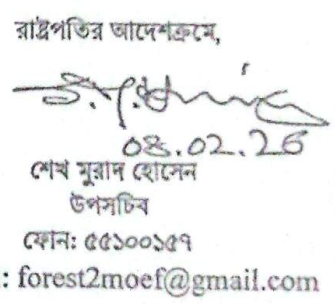 রাষ্ট্রপতির আদেশক্রমে,
08.02.26
শেখ মুরাদ হোসেন
উপসচিব
ফোন: ৫৫১০০১৫৭
: forest2moef@gmail.com